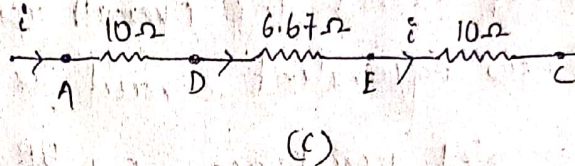 i 10Ω 6.67Ω i 10Ω
A D E C
(C)